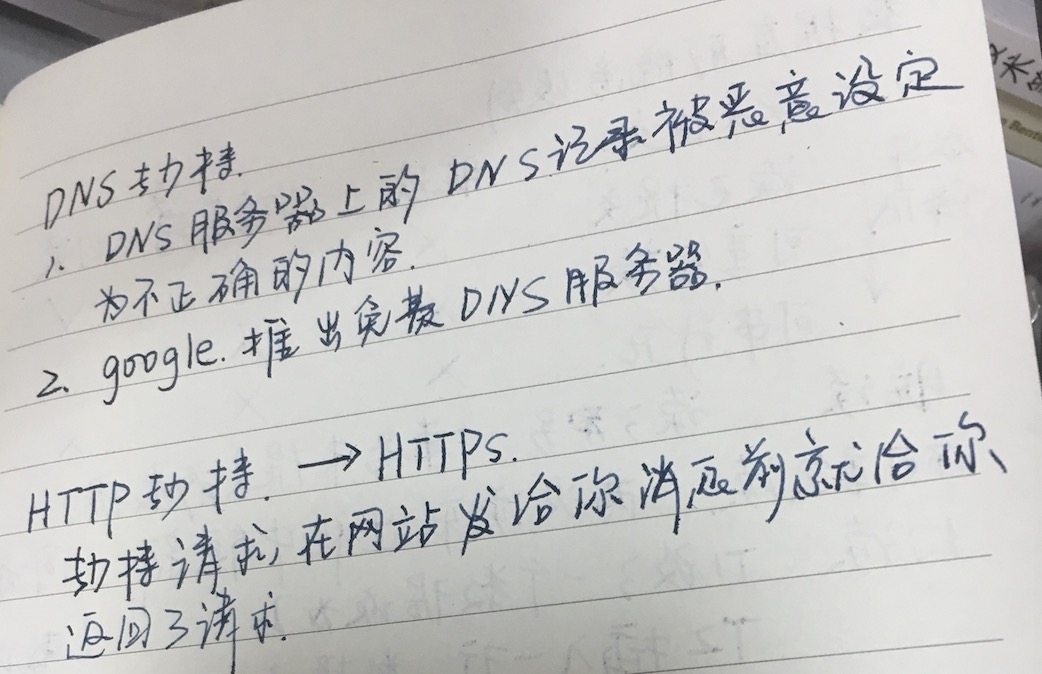 DNS劫持.
1. DNS服务器上的DNS记录被恶意设定
为不正确的内容.
2. google.推出免费DNS服务器.
HTTP劫持. → HTTPs.
劫持请求,在网站发给你消息前就给你
返回了请求.